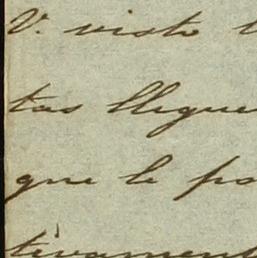 V. visto
tas llegue
que le po
tivament